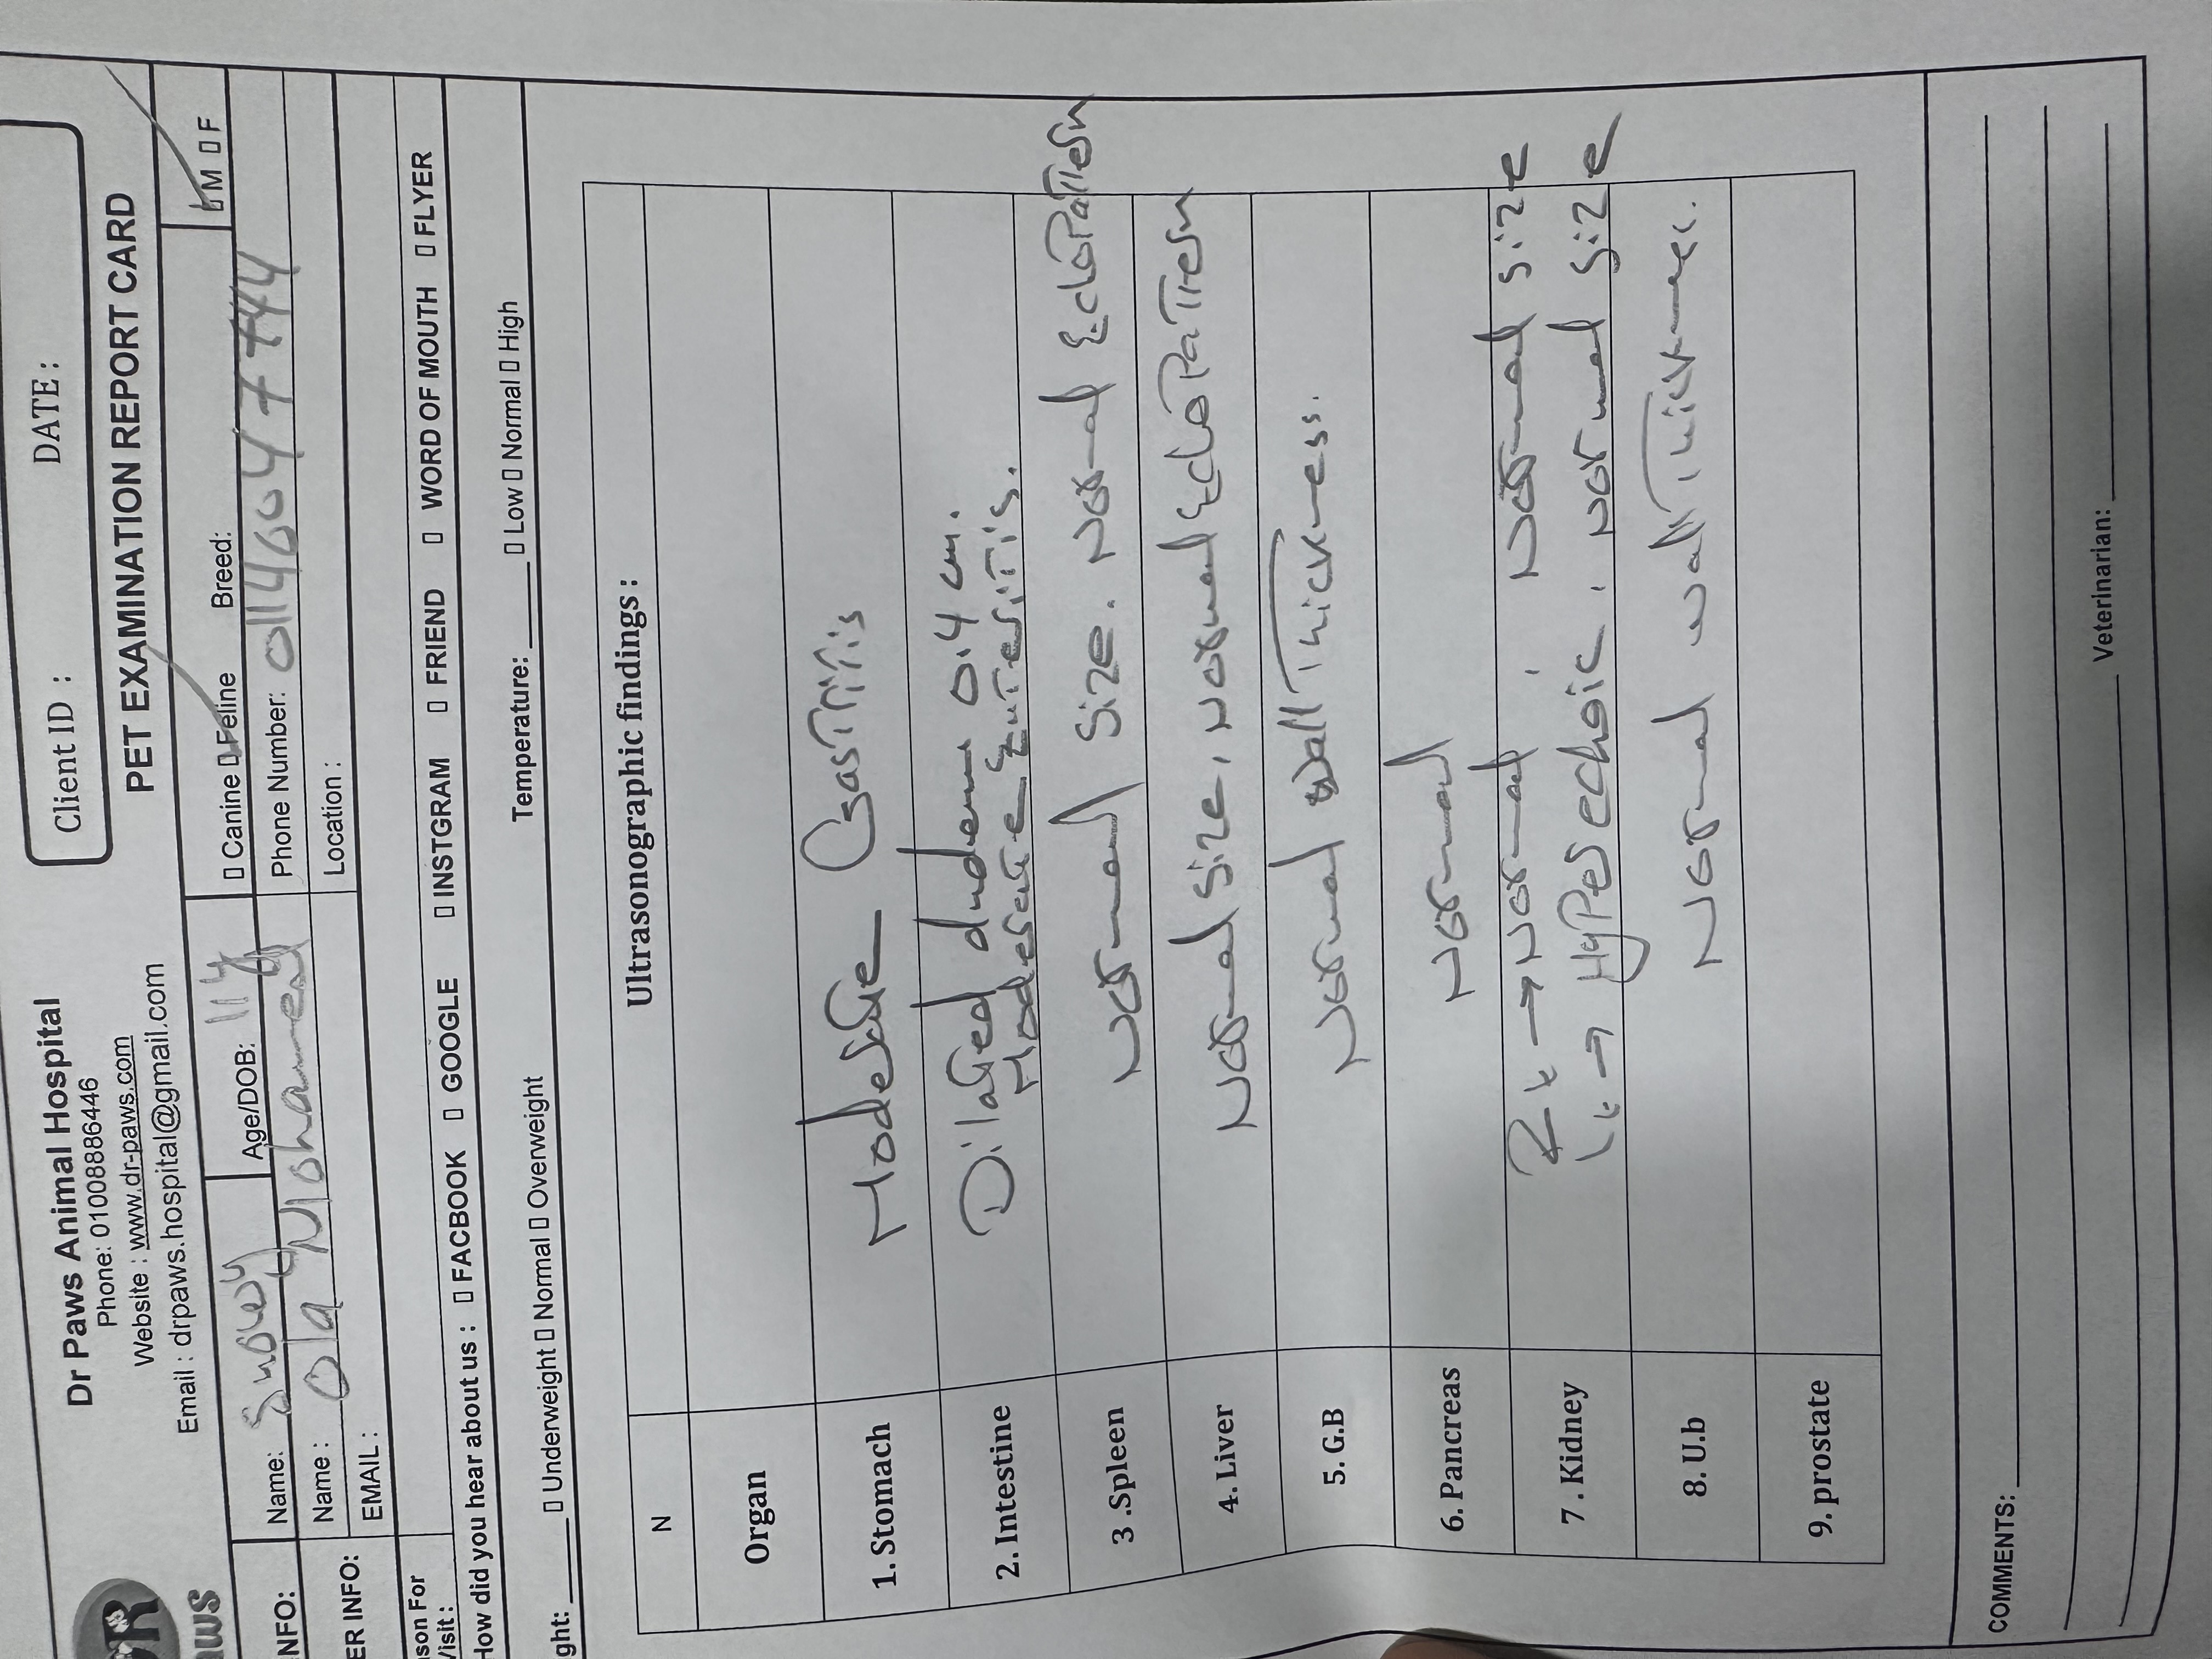 Client ID : DATE :
Dr Paws Animal Hospital
Phone: 01008886446
Website : www.dr-paws.com
Email : drpaws.hospital@gmail.com
PET EXAMINATION REPORT CARD
NFO: Name: Snowy Age/DOB: 11 y ▯ Canine ▯ Feline Breed: M ▯ F
ER INFO: Name : Ola Mohamed Phone Number:
EMAIL : Location :
son For
Visit :
How did you hear about us : ▯ FACBOOK ▯ GOOGLE ▯ INSTGRAM ▯ FRIEND ▯ WORD OF MOUTH ▯ FLYER
ght: ____ ▯ Underweight ▯ Normal ▯ Overweight Temperature: ____ ▯ Low ▯ Normal ▯ High
N Ultrasonographic findings :
Organ
1. Stomach Moderate Gastritis
2. Intestine Dilated dudenum 0.4 cm.
Moderate Enteritis.
3 .Spleen Normal Size. Normal EchoPattern
4. Liver Normal Size, Normal EchoPattern
5. G.B Normal wall Thickness.
6. Pancreas Normal
7 . Kidney Rt → Normal, Normal size
Lt → HyPerechoic, Normal size
8. U.b Normal wall Thicknes.
9. prostate
COMMENTS:
Veterinarian: